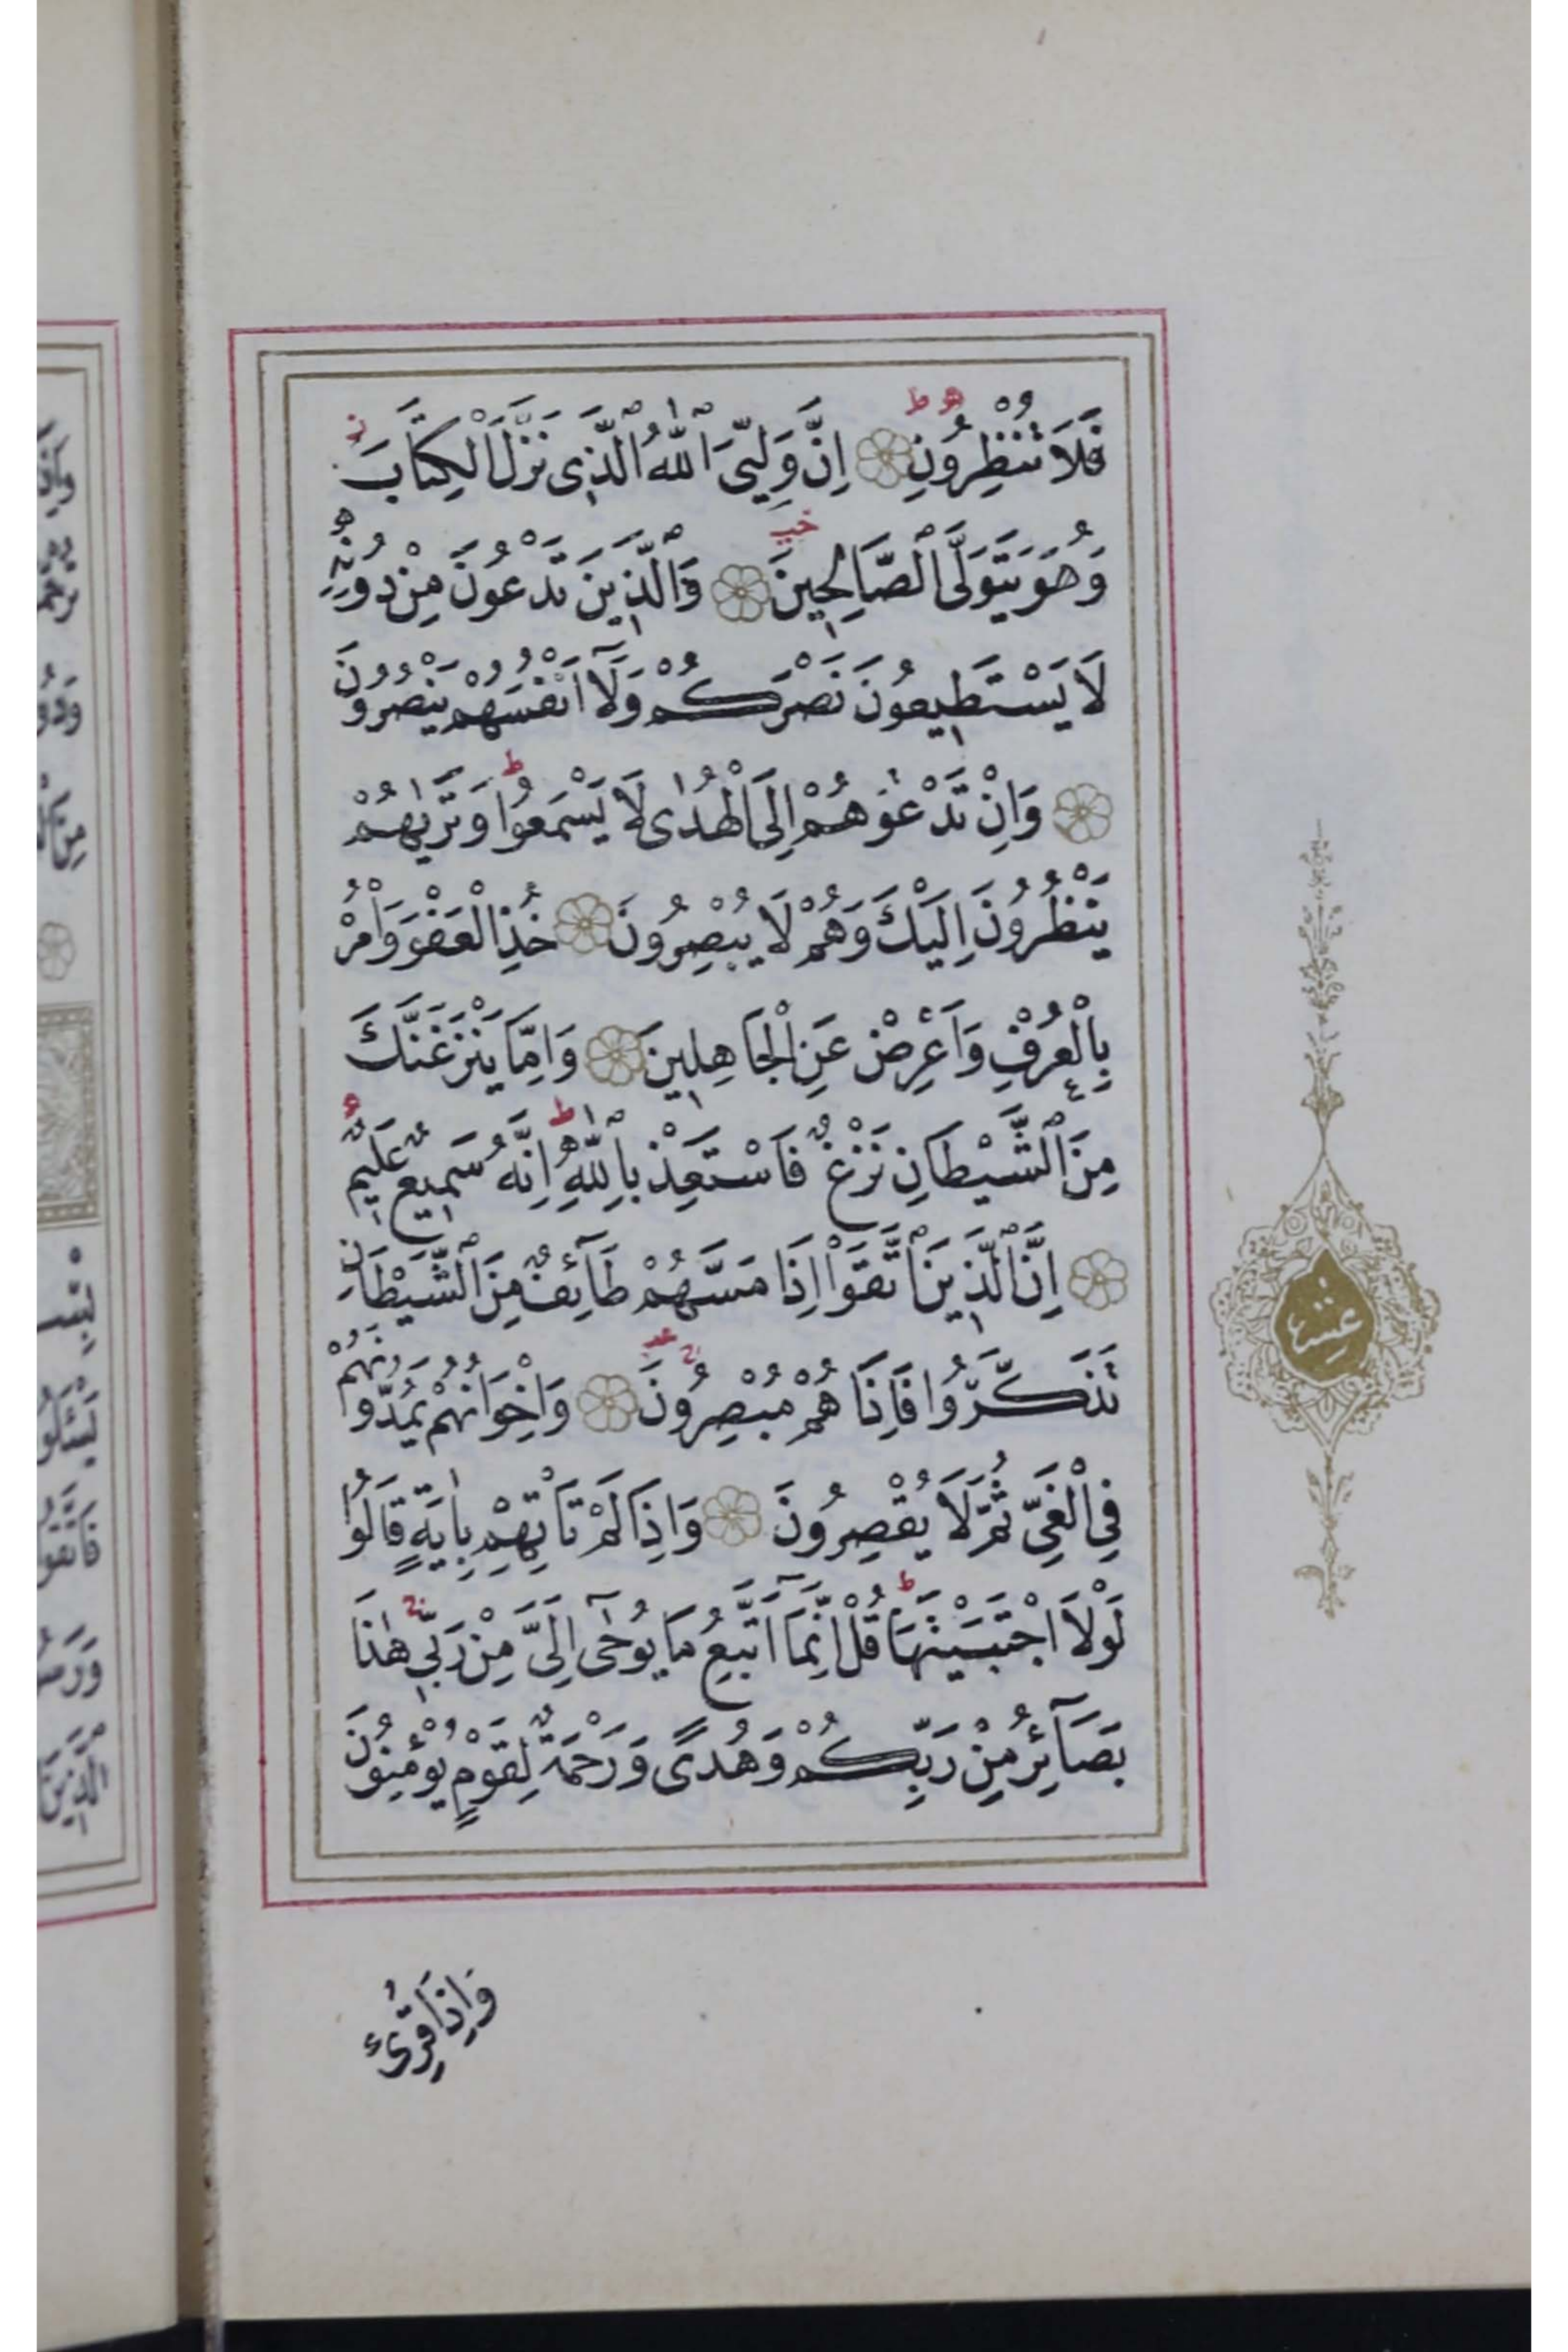 فَلَا تُنْظِرُونِ اِنَّ وَلِيِّیَ ٱللّٰهُ ٱلَّذٖی نَزَّلَ الْكِتَابَ
وَهُوَ يَتَوَلَّى ٱلصَّالِحٖينَ وَٱلَّذٖينَ تَدْعُونَ مِنْ دُونِهٖ
لَا يَسْتَطٖيعُونَ نَصْرَكُمْ وَلَٓا اَنْفُسَهُمْ يَنْصُرُونَ
وَاِنْ تَدْعُوهُمْ اِلَى الْهُدٰى لَا يَسْمَعُوا وَتَرٰيهُمْ
يَنْظُرُونَ اِلَيْكَ وَهُمْ لَا يُبْصِرُونَ خُذِ الْعَفْوَ وَاْمُرْ
بِالْعُرْفِ وَاَعْرِضْ عَنِ الْجَاهِلٖينَ وَاِمَّا يَنْزَغَنَّكَ
مِنَ ٱلشَّيْطَانِ نَزْغٌ فَاسْتَعِذْ بِٱللّٰهِ اِنَّهُ سَمٖيعٌ عَلٖيمٌ
اِنَّ ٱلَّذٖينَ ٱتَّقَوْا اِذَا مَسَّهُمْ طَٓائِفٌ مِنَ ٱلشَّيْطَانِ
تَذَكَّرُوا فَاِذَا هُمْ مُبْصِرُونَ وَاِخْوَانُهُمْ يَمُدُّونَهُمْ
فِى الْغَىِّ ثُمَّ لَا يُقْصِرُونَ وَاِذَا لَمْ تَاْتِهِمْ بِاٰيَةٍ قَالُوا
لَوْلَا اجْتَبَيْتَهَا قُلْ اِنَّمَٓا اَتَّبِعُ مَا يُوحٰٓى اِلَىَّ مِنْ رَبّٖى هٰذَا
بَصَٓائِرُ مِنْ رَبِّكُمْ وَهُدًى وَرَحْمَةٌ لِقَوْمٍ يُؤْمِنُونَ
وَاِذَا قُرِئَ
عشر